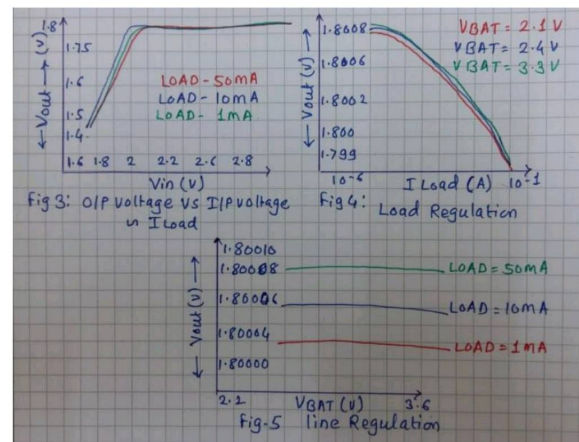 1.8
1.75
1.6
1.5
1.4
Vout (V)
LOAD - 50mA
LOAD - 10mA
LOAD - 1mA
1.6 1.8 2 2.2 2.6 2.8
Vin (V)
Fig 3: O/P Voltage Vs I/P Voltage
I Load
1.8008
1.8006
1.8002
1.800
1.799
Vout (V)
VBAT = 2.1 V
VBAT = 2.4 V
VBAT = 3.3 V
10-6 I Load (A) 10-1
Fig 4: Load Regulation
1.80010
1.80008
1.80006
1.80004
1.80000
Vout (V)
LOAD = 50mA
LOAD = 10mA
LOAD = 1mA
2.2 VBAT (V) 3.6
Fig.5 line Regulation